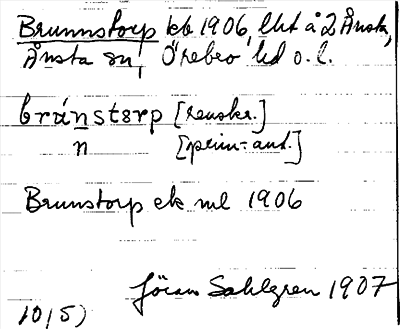 Brunnstorp kb 1906, lht å 2 Ånsta,
Ånsta sn, Örebro hd o. l.
brúnstɵrp [renskr.]
n [prim-ant.]
Brunstorp ek ml 1906
Jöran Sahlgren 1907
10/5)